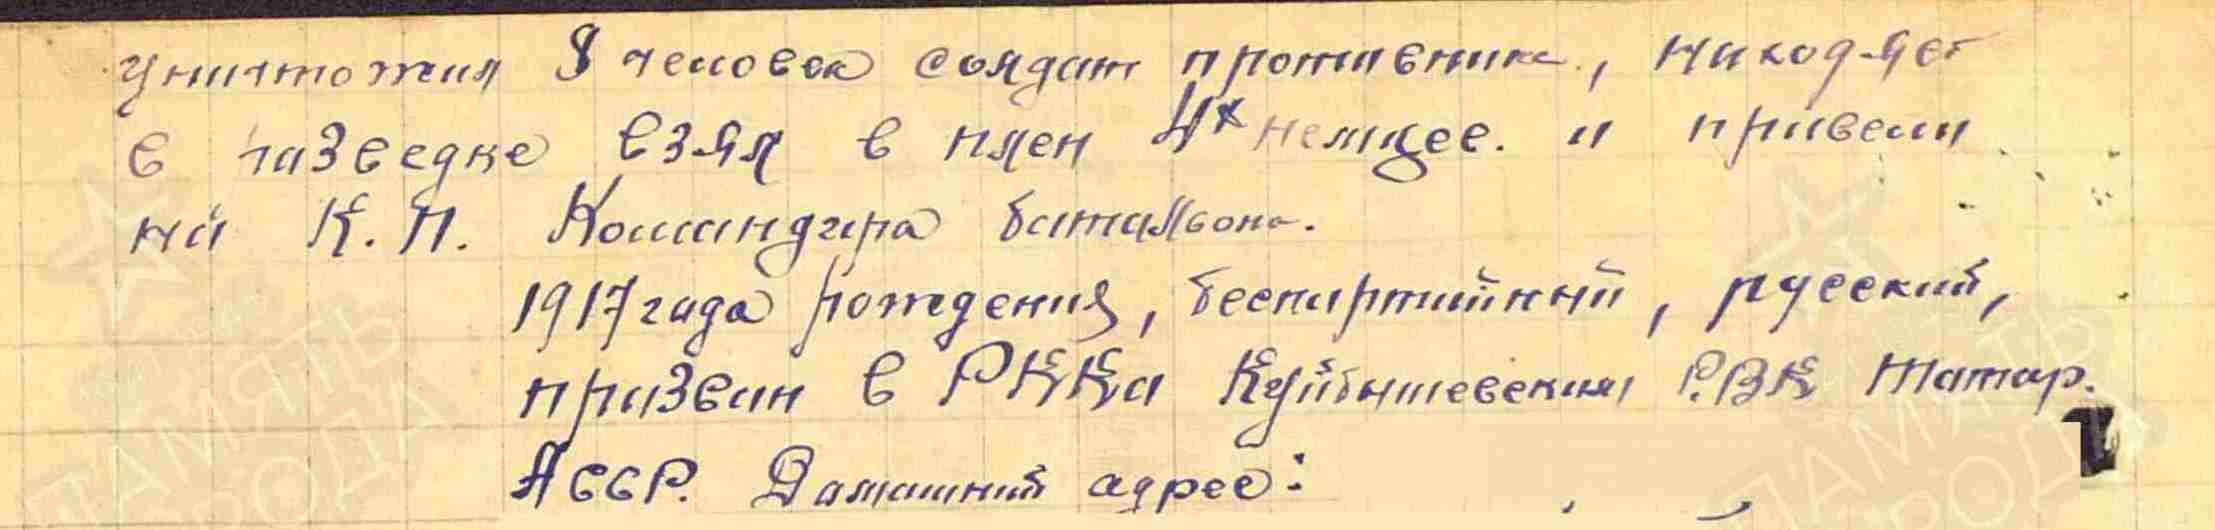 уничтожил 8 человек солдат противника, находясь
в разведке взял в плен 4х немцев. и привели
на К.П. Командира баталъона.
1917 года рождения, беспартийный, русский,
призван в РККа Куйбышевским Р.ВК Татар.
АССР. Домашний адрес:
ПАМЯТЬ НАРОДА
ПАМЯТЬ НАРОДА